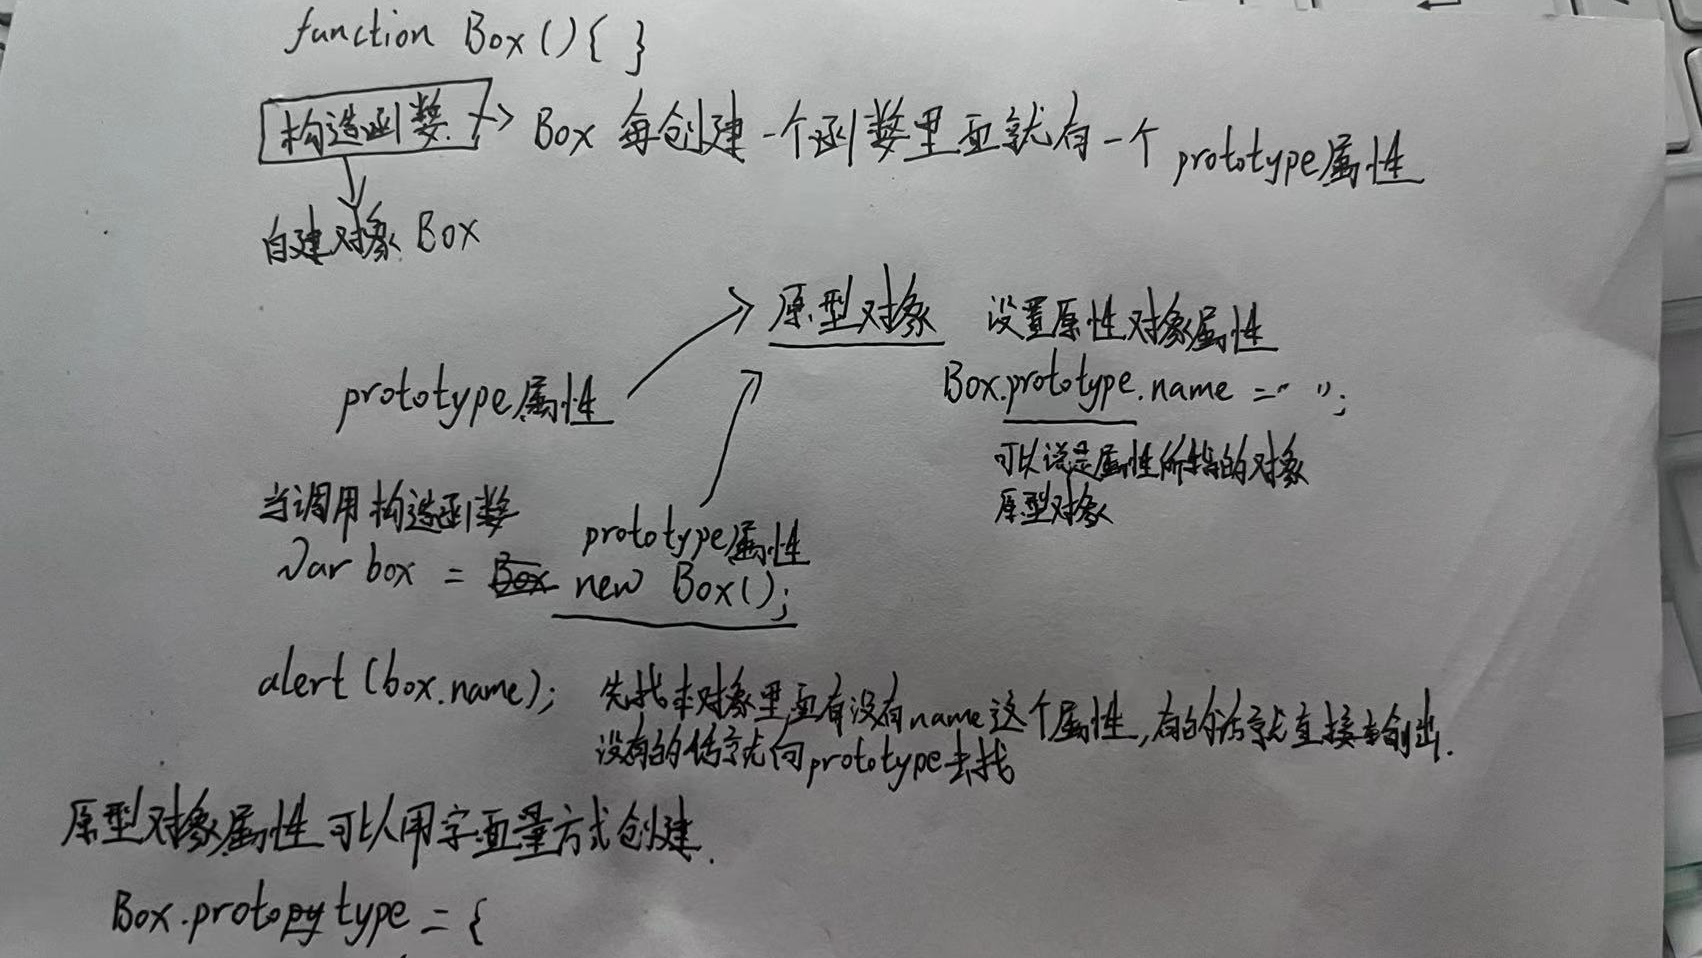 function Box(){ }
构造函数 → Box 每创建一个函数里面就有一个 prototype属性
自建对象 Box
原型对象 设置原性对象属性
prototype属性 Box.prototype.name =" ";
可以说是属性所指的对象
原型对象
当调用构造函数
prototype属性
Var box = Box new Box();
alert(box.name); 先找本对象里面有没有name这个属性,有的话就直接输出.
没有的话就向prototype去找
原型对象属性可以用字面量方式创建.
Box.prototype = {